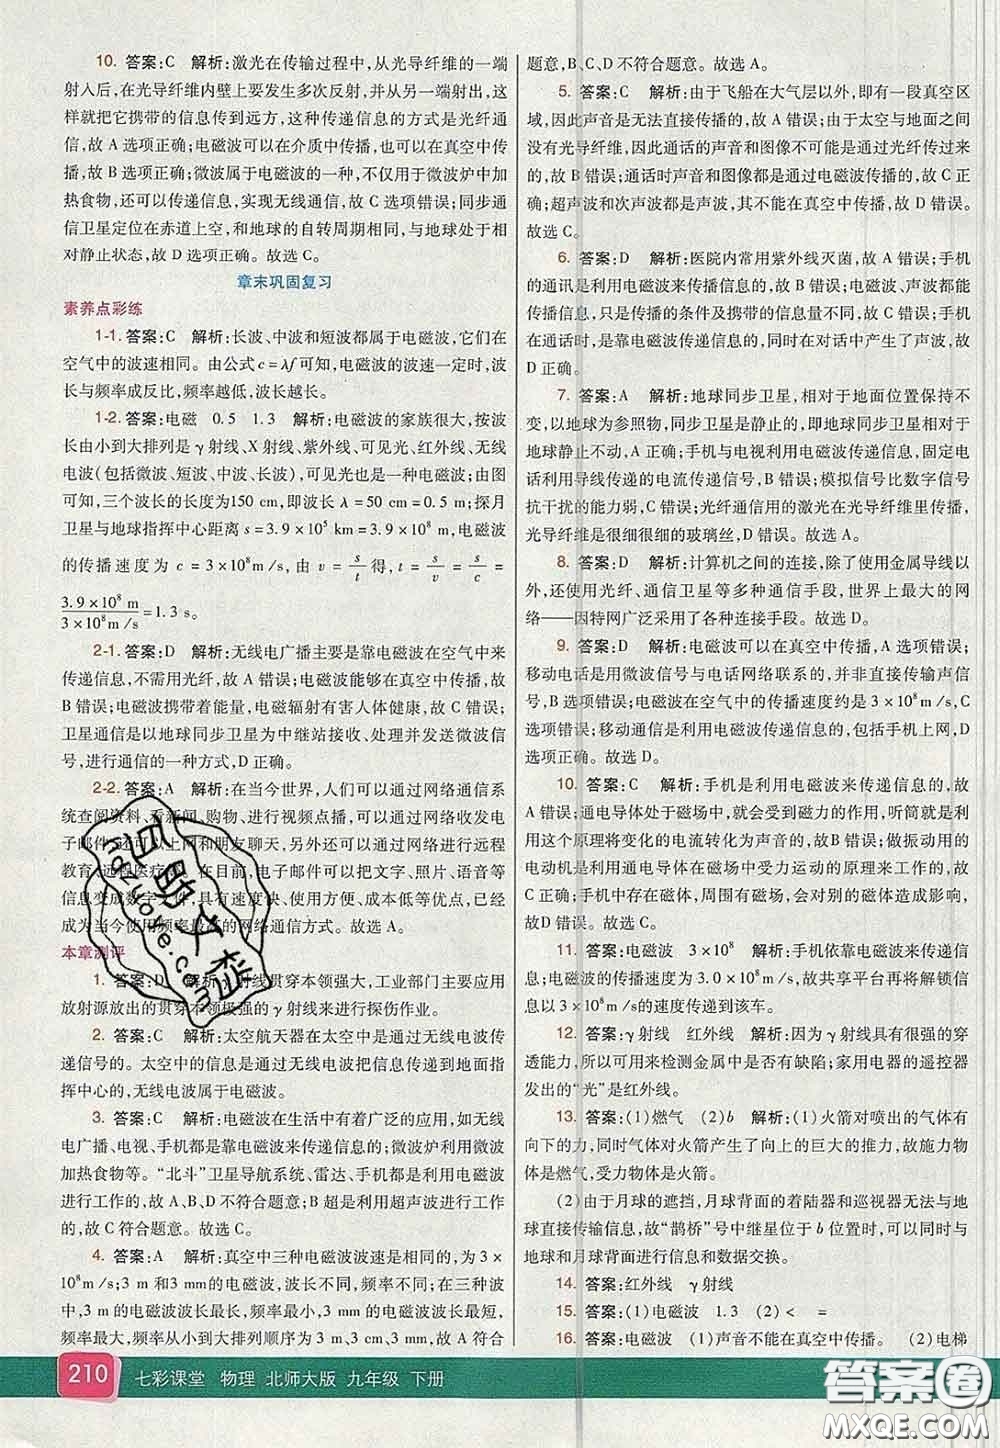 10. 答案:C 解析:激光在传输过程中,从光导纤维的一端
射入后,在光导纤维内壁上要发生多次反射,并从另一端射出,这
样就把它携带的信息传到远方,这种传递信息的方式是光纤通
信,故 A 选项正确;电磁波可以在介质中传播,也可以在真空中传
播,故 B 选项正确;微波属于电磁波的一种,不仅用于微波炉中加
热食物,还可以传递信息,实现无线通信,故 C 选项错误;同步通
信卫星定位在赤道上空,和地球的自转周期相同,与地球处于相
对静止状态,故 D 选项正确。故选 C。
章末巩固复习
素养点彩练
1-1. 答案:C 解析:长波、中波和短波都属于电磁波,它们在
空气中的波速相同。由公式 c=λf 可知,电磁波的波速一定时,波
长与频率成反比,频率越低,波长越长。
1-2. 答案:电磁 0.5 1.3 解析:电磁波的家族很大,按波
长由小到大排列是 γ 射线、X 射线、紫外线、可见光、红外线、无线
电波(包括微波、短波、中波、长波),可见光也是一种电磁波;由图
可知,三个波长的长度为150 cm,即波长 λ=50 cm=0.5 m;探月
卫星与地球指挥中心距离 s=3.9×10⁵ km=3.9×10⁸ m,电磁波
的传播速度为 c=3×10⁸m/s,由 v=s/t得,t=s/v=s/c=
3.9×10⁸ m/3×10⁸m/s=1.3 s。
2-1. 答案:D 解析:无线电广播主要是靠电磁波在空气中来
传递信息,不需用光纤,故 A 错误;电磁波能够在真空中传播,故 B
错误;电磁波携带着能量,电磁辐射有害人体健康,故 C 错误;
卫星通信是以地球同步卫星为中继站接收、处理并发送微波信
号,进行通信的一种方式,D 正确。
2-2. 答案:A 解析:在当今世界,人们可以通过网络通信系
统查阅资料、看新闻、购物、进行视频点播,可以通过网络收发电
子邮件,还可以上网和朋友聊天,另外还可以通过网络进行远程
教育、远程医疗等。在目前,电子邮件可以把文字、照片、语音等
信息变成数字文件,具有速度快、使用方便、成本低等优点,已经
成为当今使用频率最高的网络通信方式。故选 A。
本章测评
1. 答案:D 解析:γ射线贯穿本领强大,工业部门主要应用
放射源放出的贯穿本领极强的 γ 射线来进行探伤作业。
2. 答案:C 解析:太空航天器在太空中是通过无线电波传
递信号的。太空中的信号是通过无线电波把信息传递到地面指
挥中心的,无线电波属于电磁波。
3. 答案:C 解析:电磁波在生活中有着广泛的应用,如无线
电广播、电视、手机都是靠电磁波来传递信息的;微波炉利用微波
加热食物等。“北斗”卫星导航系统、雷达、手机都是利用电磁波
进行工作的,故 A、B、D 不符合题意;B 超是利用超声波进行工作
的,故 C 符合题意。故选 C。
4. 答案:A 解析:真空中三种电磁波波速是相同的,为 3×
10⁸m/s;3 m 和 3 mm 的电磁波,波长不同,频率不同;在三种波
中,3 m 的电磁波波长最长,频率最小,3 mm 的电磁波波长最短,
频率最大,故从小到大排列顺序为 3 m、3 cm、3 mm,故 A 符合
题意,B、C、D 不符合题意。故选 A。
5. 答案:C 解析:由于飞船在大气层以外,即有一段真空区
域,因此声音是无法直接传播的,故 A 错误;由于太空与地面之间
没有光导纤维,因此通话的声音和图像不可能是通过光纤传过来
的,故 B 错误;通话时声音和图像都是通过电磁波传播的,故 C 正
确;超声波和次声波都是声波,其不能在真空中传播,故 D 错误。
故选 C。
6. 答案:D 解析:医院内常用紫外线灭菌,故 A 错误;手机
的通讯是利用电磁波来传播的,故 B 错误;电磁波、声波都能传播
信息,只是传播的条件及携带的信息量不同,故 C 错误;手机的信
息,是靠电磁波传递信息的,同时在对话中产生了声波,故
D 正确。
7. 答案:A 解析:地球同步卫星,相对于地面位置保持不
变,以地球为参照物,同步卫星是静止的,即地球同步卫星相对于
地球静止不动,A 正确;手机与电视利用电磁波传递信息,固定电
话利用导线传递的电流传递信号,B 错误;模拟信号比数字信号
抗干扰的能力弱,C 错误;光纤通信用的激光在光导纤维里传播,
光导纤维是很细很细的玻璃丝,D 错误。故选 A。
8. 答案:D 解析:计算机之间的连接,除了使用金属导线以
外,还使用光纤、通信卫星等多种通信手段,世界上最大的网
络——因特网广泛采用了各种连接手段。故选 D。
9. 答案:D 解析:电磁波可以在真空中传播,A 选项错误;
移动电话是用微波信号与电话网络联系的,并非直接传输声信
号,B 选项错误;电磁波在空气中的传播速度约是 3×10⁸ m/s,C
选项错误;移动通信是利用电磁波传递信息的,包括手机上网,D
选项正确。故选 D。
10. 答案:C 解析:手机是利用电磁波来传递信息的,故
A 错误;通电导体处于磁场中,就会受到磁力的作用,听筒就是利
用这个原理将变化的电流转化为声音的,故 B 错误;做振动用的
电动机是利用通电导体在磁场中受力运动的原理来工作的,故
C 正确;手机中存在磁体,周围有磁场,会对别的磁体造成影响,
故D 错误。故选 C。
11. 答案:电磁波 3×10⁸ 解析:手机依靠电磁波来传递信
息;电磁波的传播速度为 3.0×10⁸ m/s,故共享平台再将解锁信
息以 3×10⁸m/s的速度传递到该车。
12. 答案:γ 射线 红外线 解析:因为 γ 射线具有很强的穿
透能力,所以可用来检测金属中是否有缺陷;家用电器的遥控器
发出的“光”是红外线。
13. 答案:(1)燃气 (2)b 解析:(1)火箭对喷出的气体有
向下的力,同时气体对火箭产生了向上的巨大的推力,故施力物
体是燃气,受力物体是火箭。
(2)由于月球的遮挡,月球背面的着陆器和巡视器无法与地
球直接传输信息,故“鹊桥”号中继星位于 b 位置时,可以同时与
地球和月球背面进行信息和数据交换。
14. 答案:红外线 γ 射线
15. 答案:(1)电磁波 1.3 (2)< =
16. 答案:电磁波 (1)声音不能在真空中传播。 (2)电梯
210 七彩课堂 物理 北师大版 九年级 下册
答案圈
MXQE.COM